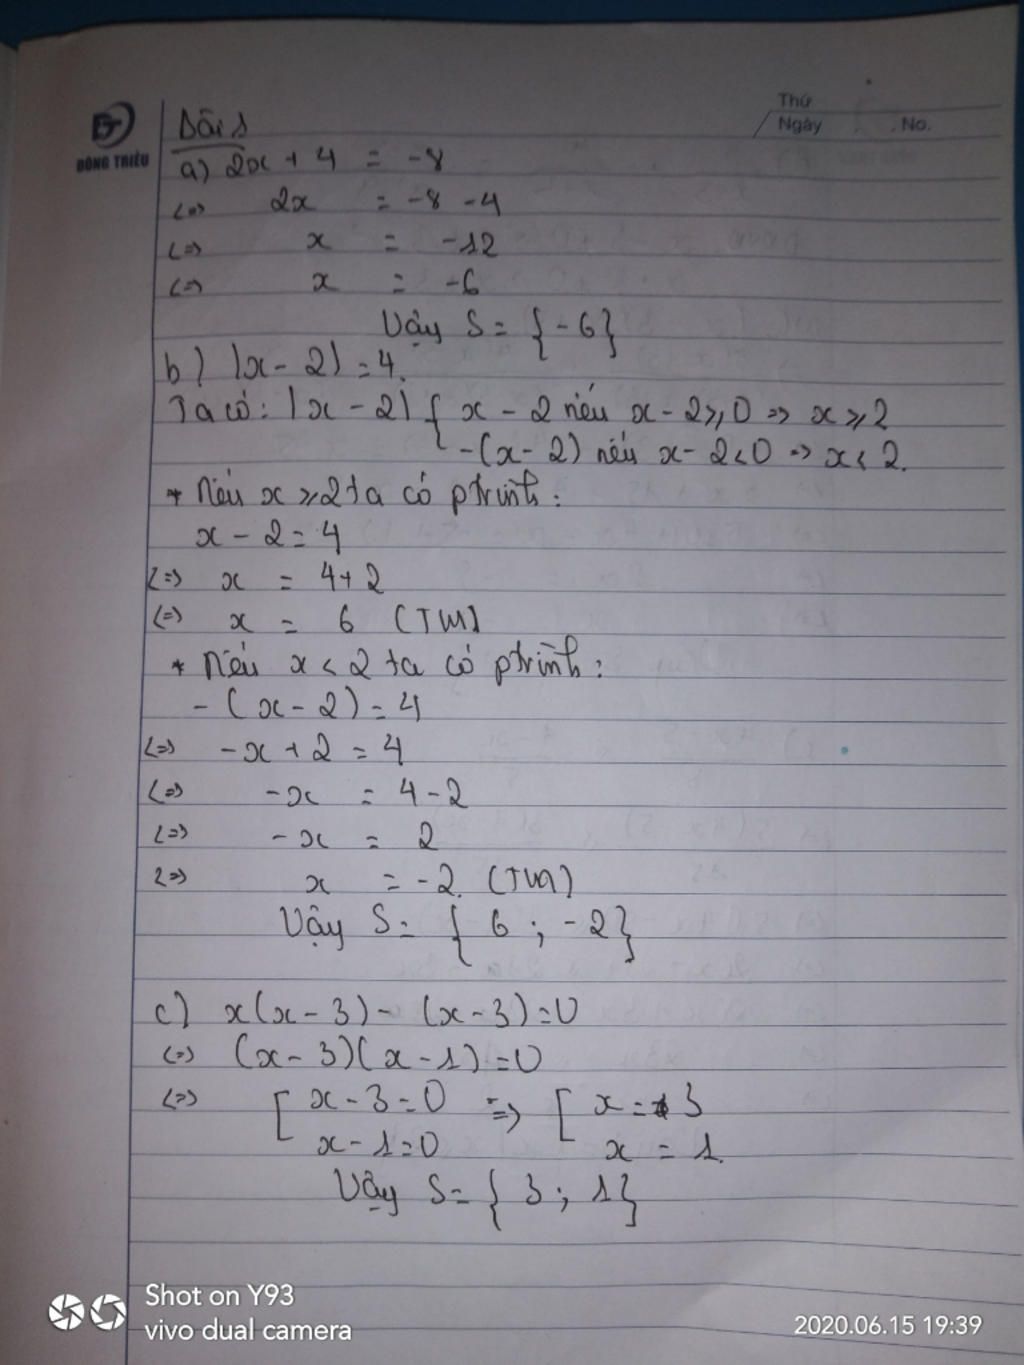 ĐÔNG TRIỀU
Thứ
Ngày No.
Bài 1
a) 2x + 4 = -8
<=> 2x = -8 -4
<=> x = -12
<=> x = -6
Vậy S = {-6}
b) |x - 2| = 4.
Ta có: |x - 2| { x - 2 nếu x - 2 ⩾ 0 => x ⩾ 2
-(x - 2) nếu x - 2 < 0 => x < 2.
* Nếu x ⩾ 2 ta có ptrình:
x - 2 = 4
<=> x = 4+2
<=> x = 6 (TM)
* Nếu x < 2 ta có ptrình:
- (x - 2) = 4
<=> -x + 2 = 4
<=> -x = 4 - 2
<=> -x = 2
<=> x = -2. (TM)
Vậy S = { 6 ; -2}
c) x(x - 3) - (x - 3) = 0
<=> (x - 3)(x - 1) = 0
<=> [ x - 3 = 0 => [ x = 3
x - 1 = 0 x = 1.
Vậy S = { 3 ; 1}
Shot on Y93
vivo dual camera
2020.06.15 19:39